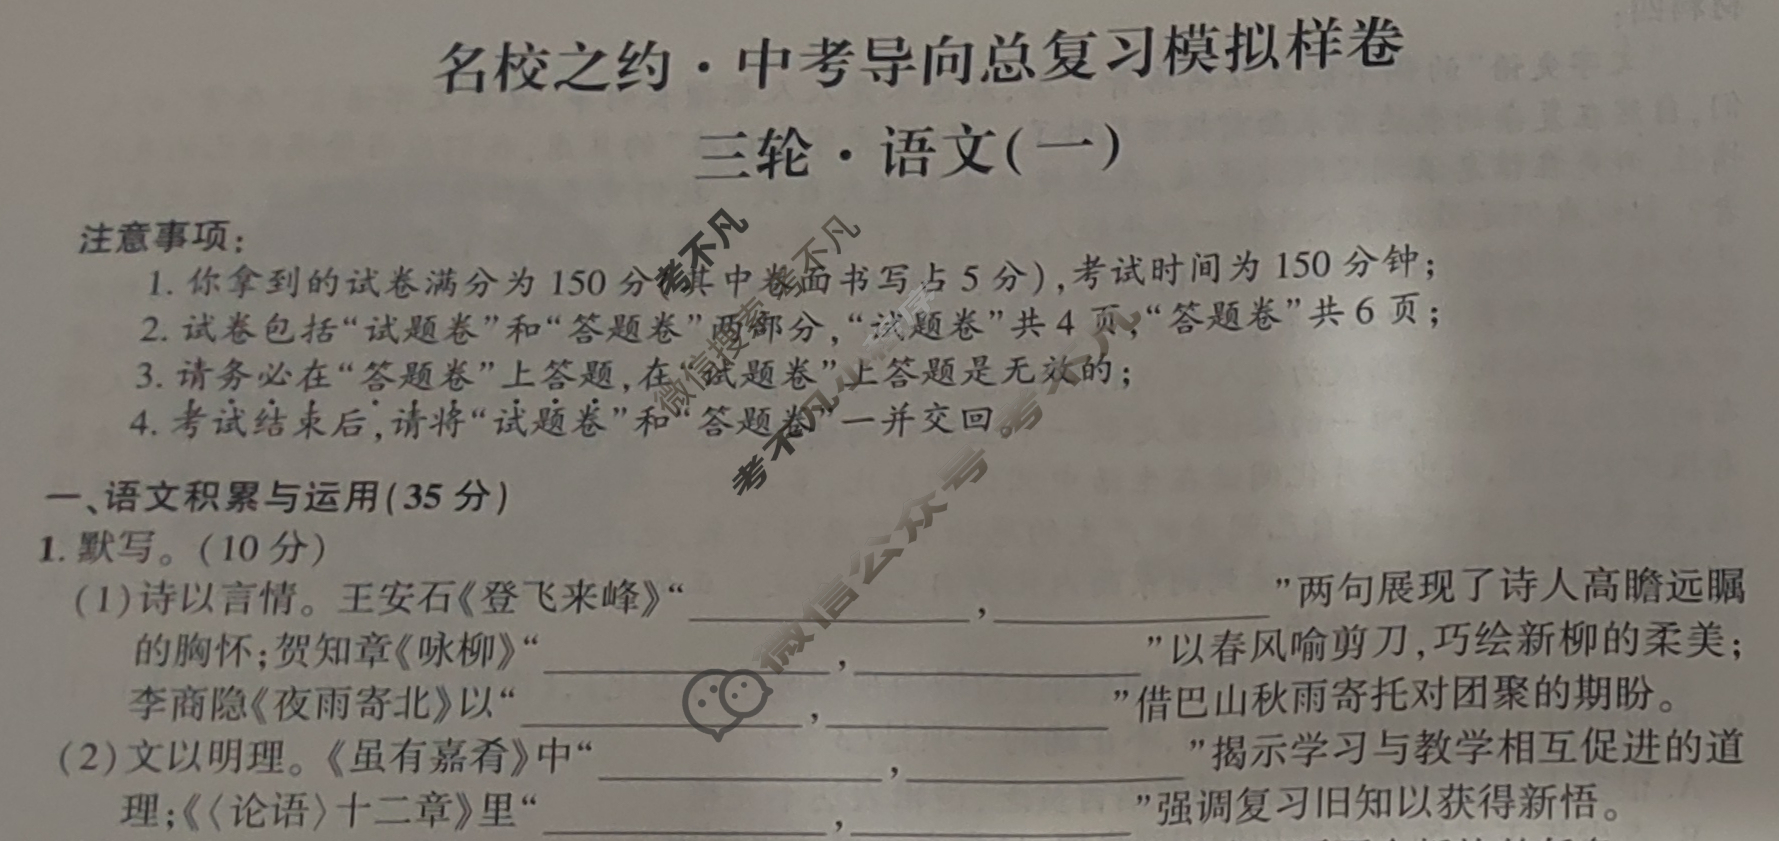 名校之约·中考导向总复习模拟样卷
三轮·语文(一)
注意事项:
1. 你拿到的试卷满分为 150 分(其中卷面书写占 5 分),考试时间为 150 分钟;
2. 试卷包括“试题卷”和“答题卷”两部分,“试题卷”共 4 页,“答题卷”共 6 页;
3. 请务必在“答题卷”上答题,在“试题卷”上答题是无效的;
4. 考试结束后,请将“试题卷”和“答题卷”一并交回。
一、语文积累与运用(35 分)
1. 默写。(10 分)
(1)诗以言情。王安石《登飞来峰》“____________,____________”两句展现了诗人高瞻远瞩
的胸怀;贺知章《咏柳》“____________,____________”以春风喻剪刀,巧绘新柳的柔美;
李商隐《夜雨寄北》以“____________,____________”借巴山秋雨寄托对团聚的期盼。
(2)文以明理。《虽有嘉肴》中“____________,____________”揭示学习与教学相互促进的道
理;《〈论语〉十二章》里“____________,____________”强调复习旧知以获得新悟。
考不凡
微信搜索 考不凡
微信公众号 考不凡